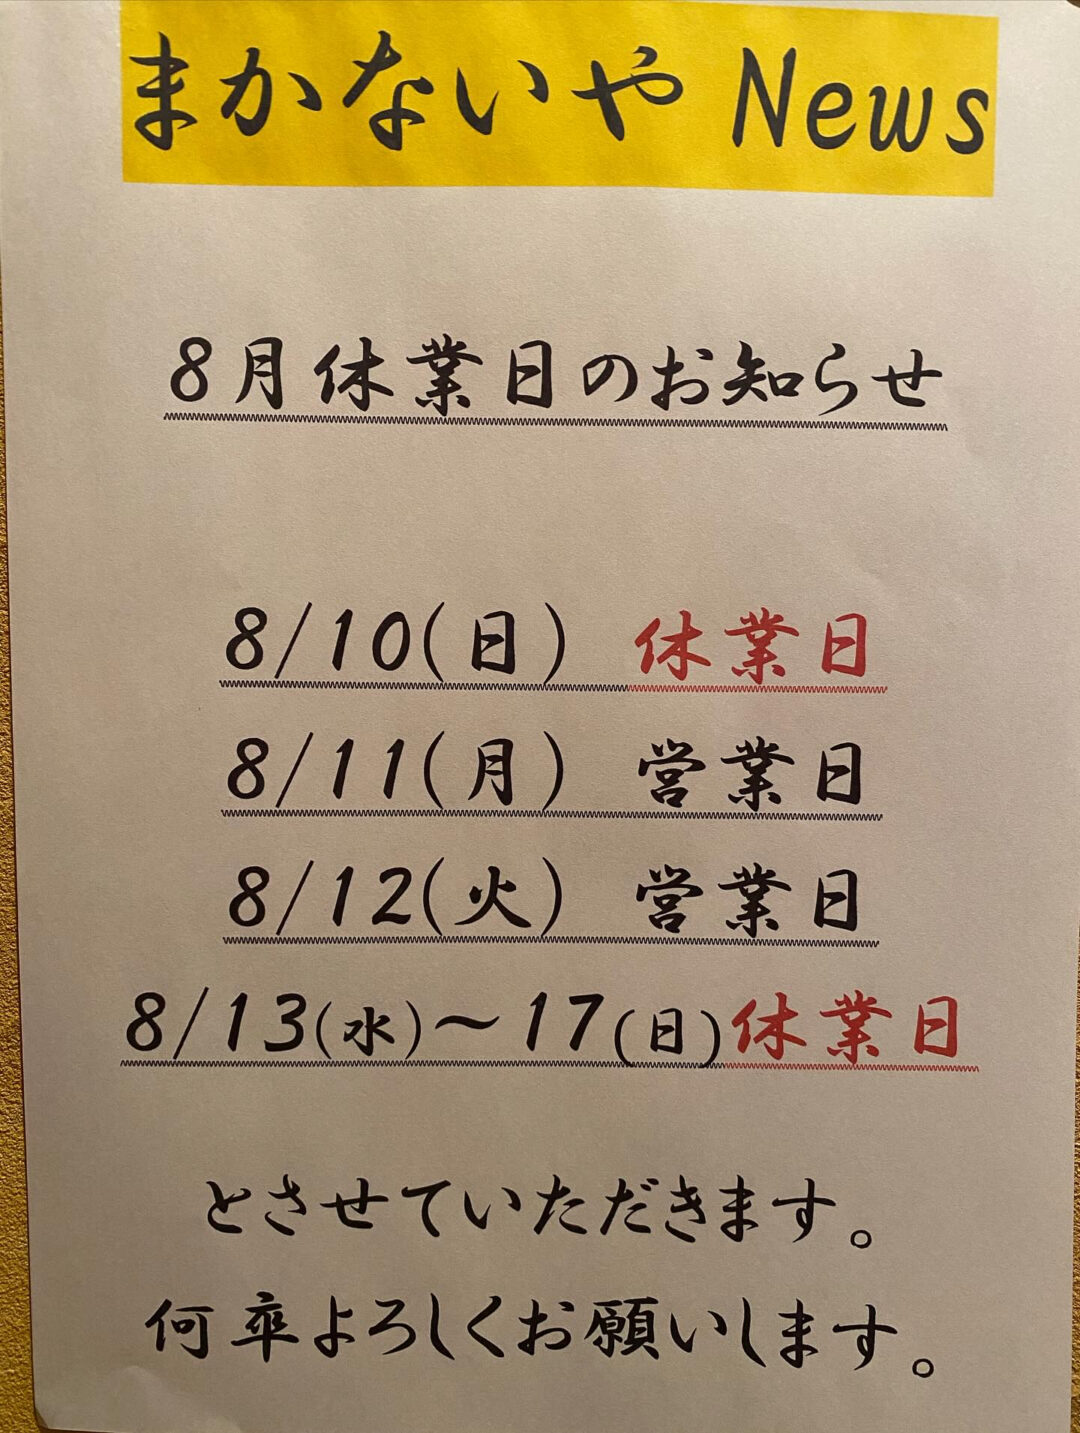 まかないや News
8月休業日のお知らせ
8/10(日) 休業日
8/11(月) 営業日
8/12(火) 営業日
8/13(水)～17(日)休業日
とさせていただきます。
何卒よろしくお願いします。